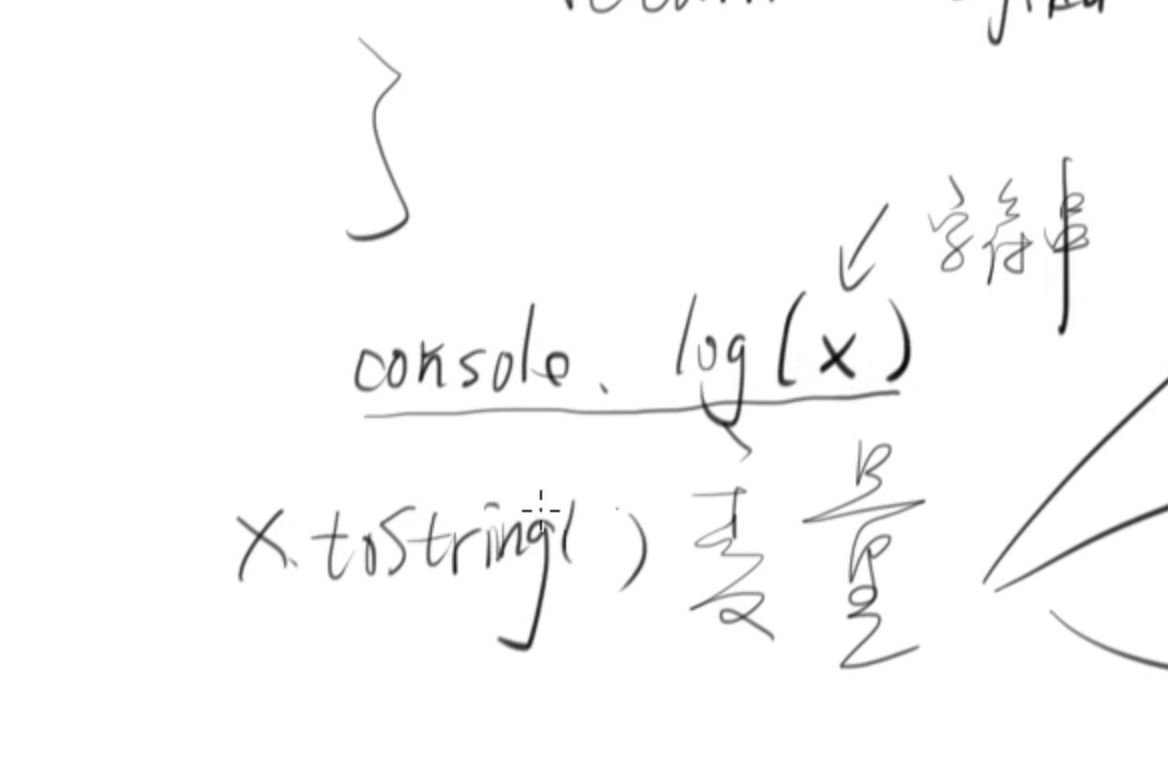 }
字符串
console.log(x)
x.toString() 变量